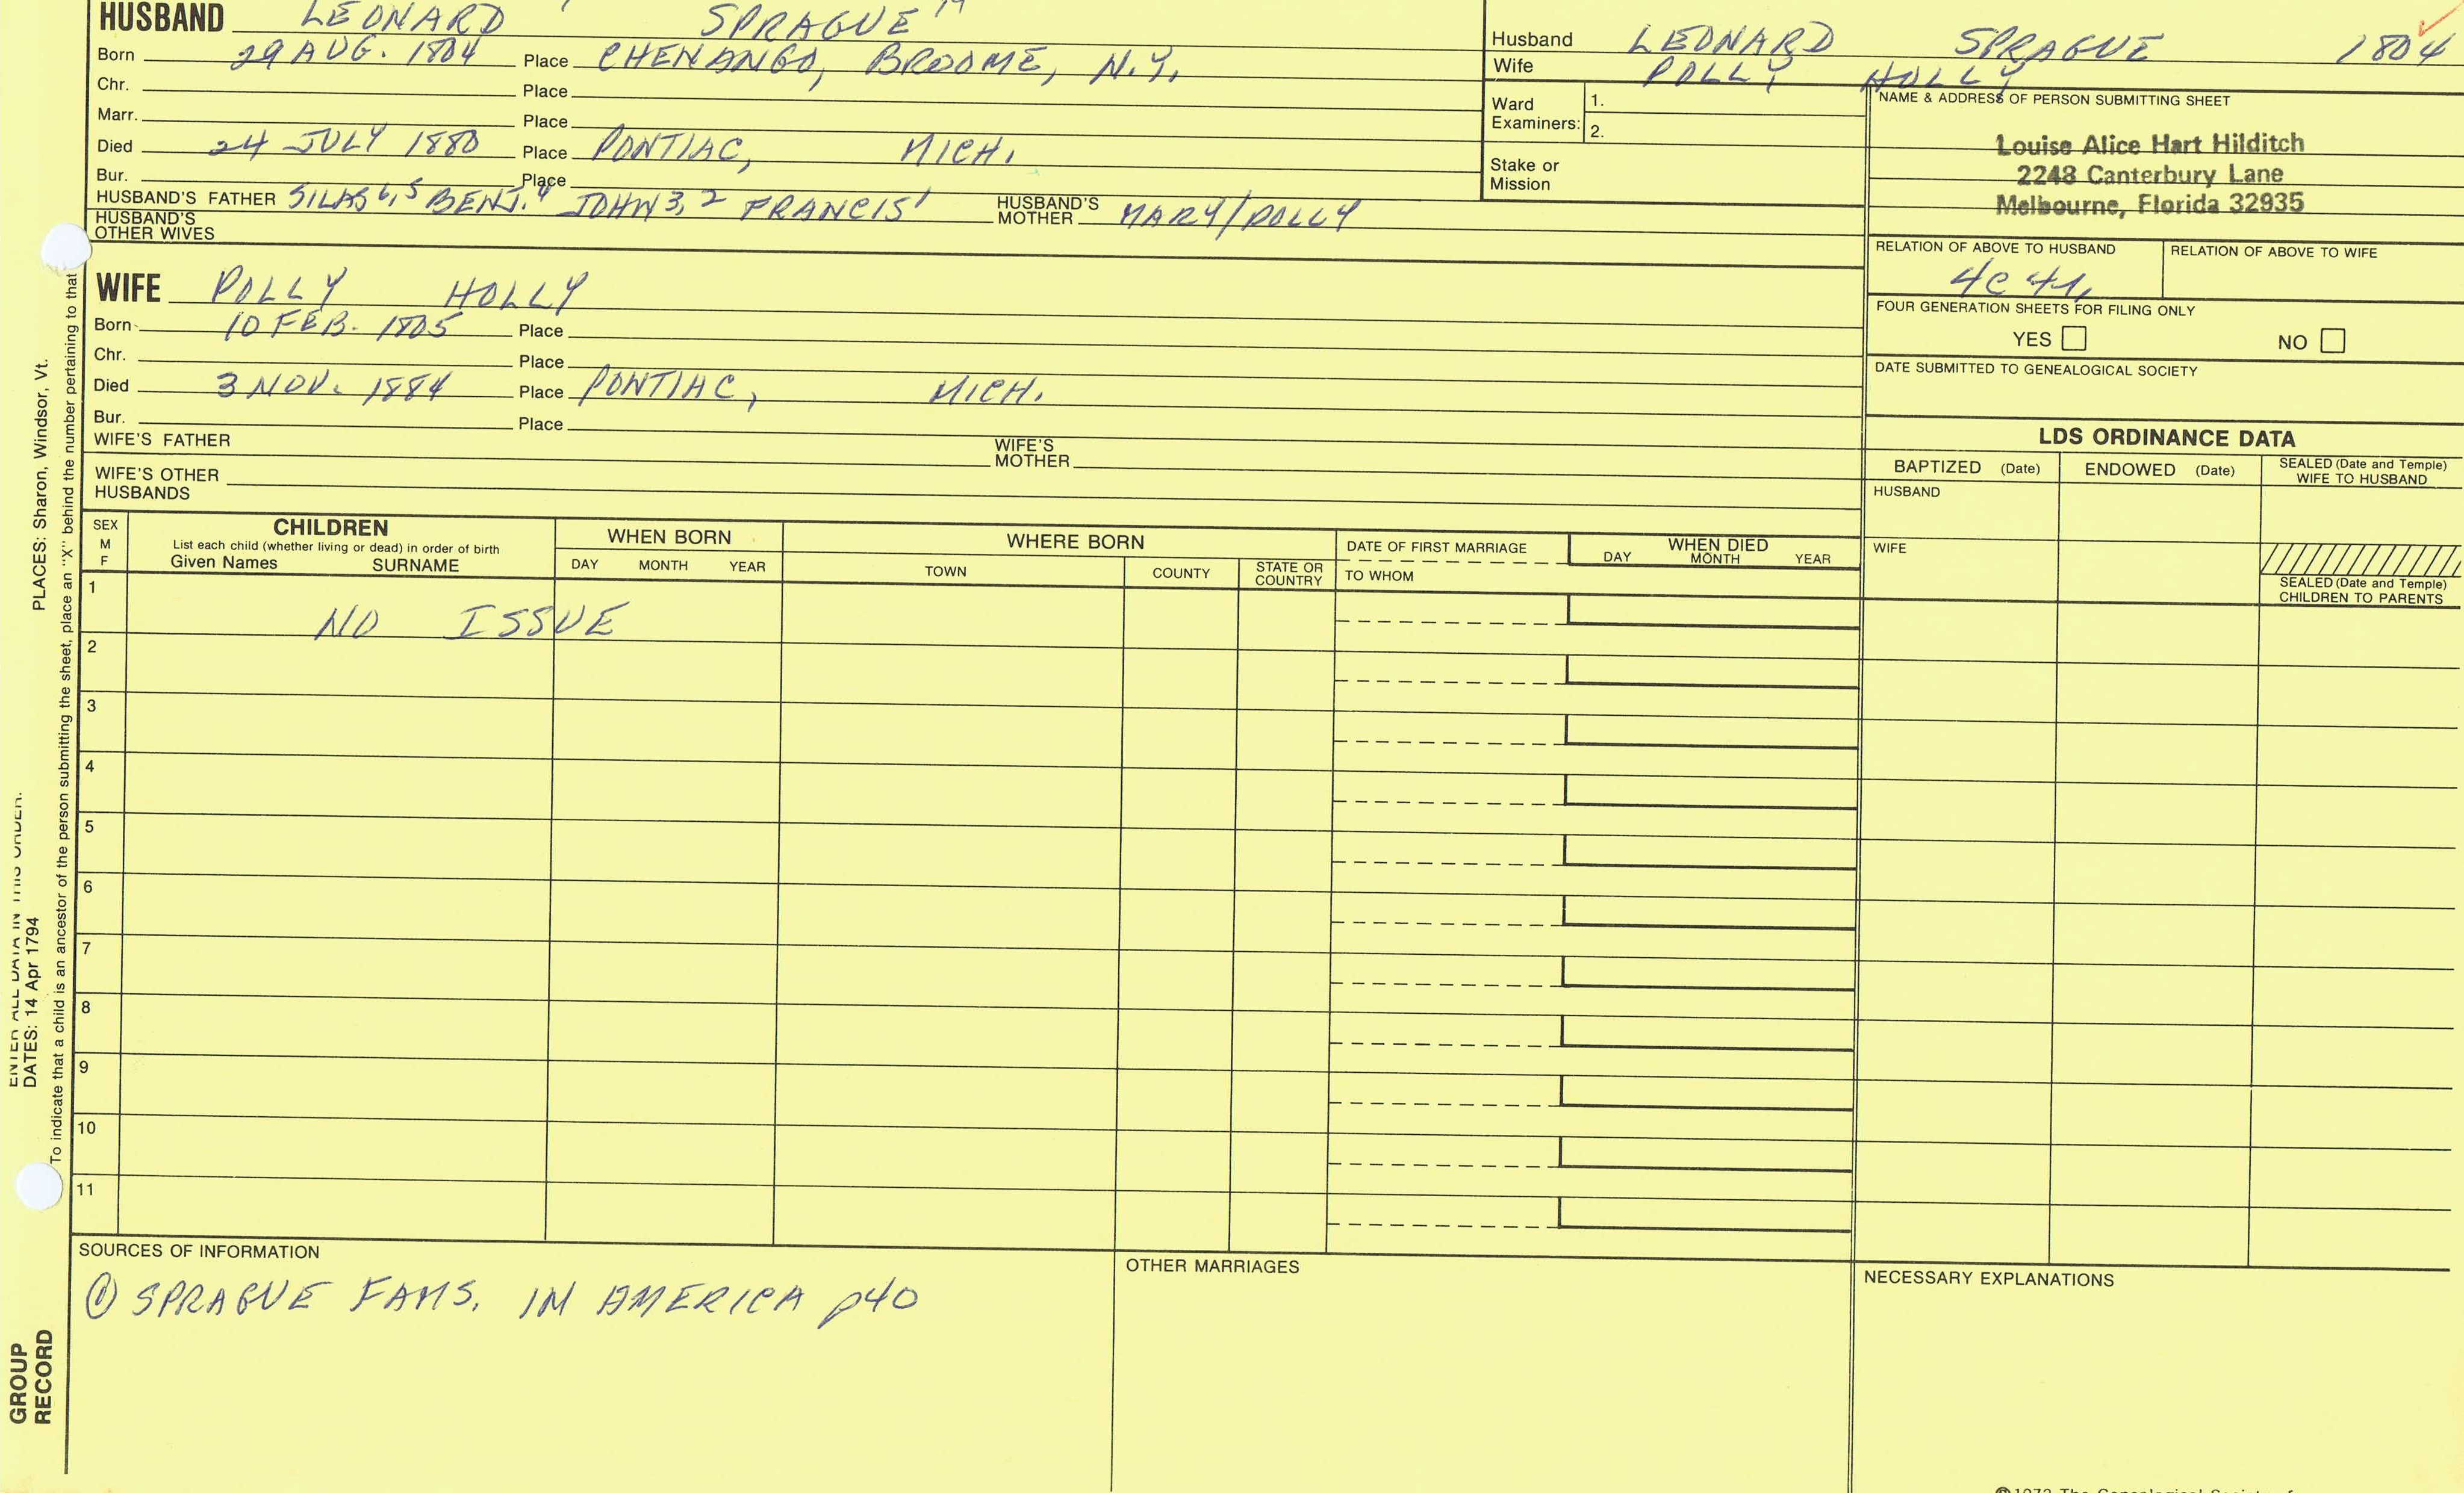 HUSBAND LEONARD SPRAGUE
Born 29 AUG. 1804 Place CHENANGO, BROOME, N.Y.
Chr. Place
Marr. Place
Died 24 JULY 1880 Place PONTIAC, MICH.
Bur. Place
HUSBAND'S FATHER SILAS 6,5 BENJ.4 JOHN 3,2 FRANCIS' HUSBAND'S MOTHER MARY/POLLY
HUSBAND'S OTHER WIVES
WIFE POLLY HOLLY
Born 10 FEB. 1805 Place
Chr. Place
Died 3 NOV. 1884 Place PONTIAC, MICH.
Bur. Place
WIFE'S FATHER WIFE'S MOTHER
WIFE'S OTHER HUSBANDS
Husband LEONARD SPRAGUE 1804
Wife POLLY HOLLY
Ward Examiners: 1.
2.
Stake or Mission
NAME & ADDRESS OF PERSON SUBMITTING SHEET
Louise Alice Hart Hilditch
2248 Canterbury Lane
Melbourne, Florida 32935
RELATION OF ABOVE TO HUSBAND RELATION OF ABOVE TO WIFE
FOUR GENERATION SHEETS FOR FILING ONLY
YES NO
DATE SUBMITTED TO GENEALOGICAL SOCIETY
LDS ORDINANCE DATA
BAPTIZED (Date) ENDOWED (Date) SEALED (Date and Temple) WIFE TO HUSBAND
HUSBAND
WIFE
SEALED (Date and Temple) CHILDREN TO PARENTS
SEX M F
CHILDREN
List each child (whether living or dead) in order of birth
Given Names SURNAME
WHEN BORN
DAY MONTH YEAR
WHERE BORN
TOWN COUNTY STATE OR COUNTRY
DATE OF FIRST MARRIAGE
TO WHOM
WHEN DIED
DAY MONTH YEAR
1 NO ISSUE
2
3
4
5
6
7
8
9
10
11
SOURCES OF INFORMATION
① SPRAGUE FAMS. IN AMERICA p40
OTHER MARRIAGES
NECESSARY EXPLANATIONS
ENTER ALL DATA IN THIS ORDER.
DATES: 14 Apr 1794
PLACES: Sharon, Windsor, Vt.
To indicate that a child is an ancestor of the person submitting the sheet, place an "X" behind the number pertaining to that
GROUP
RECORD